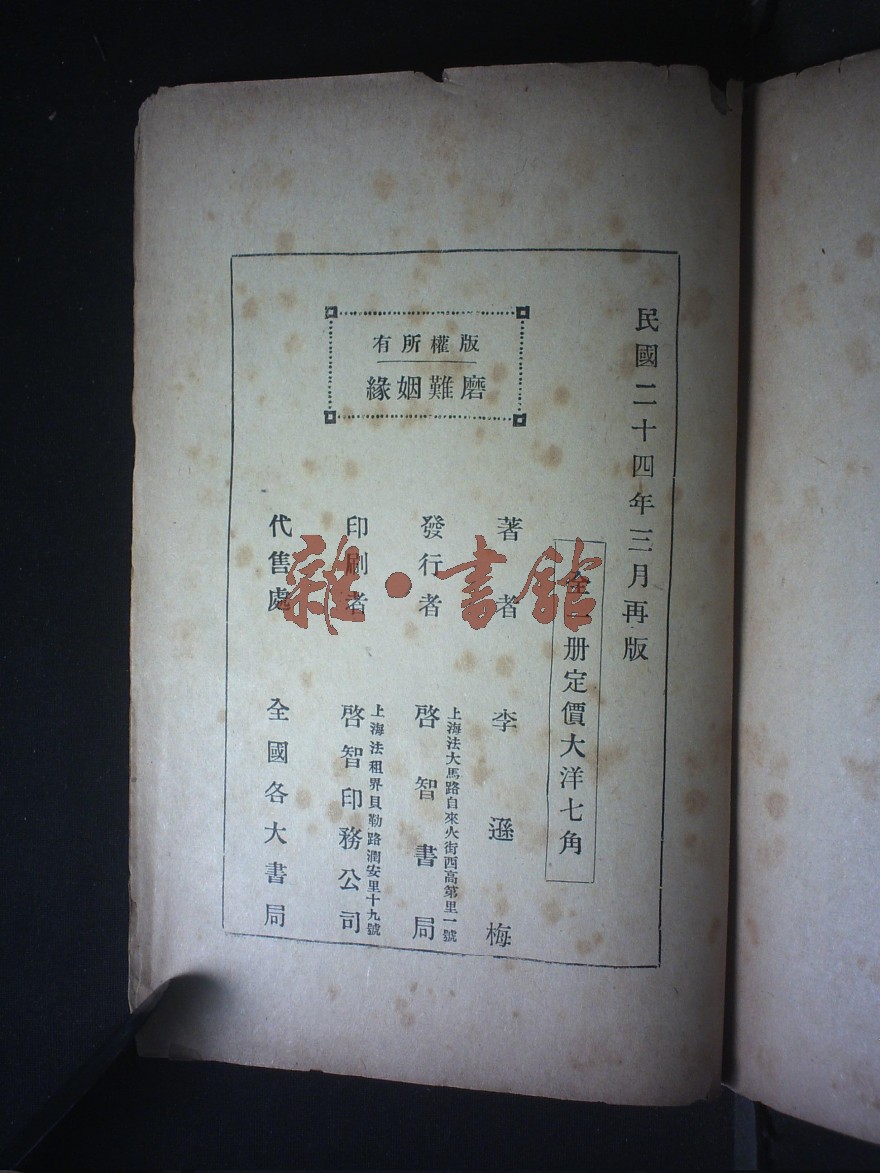 民國二十四年三月再版
全一册定價大洋七角
版權所有
磨難姻緣
著者 李遜梅
發行者 上海法大馬路自來火街西高第里一號 啓智書局
印刷者 上海法租界貝勒路潤安里十九號 啓智印務公司
代售處 全國各大書局
雜·書館